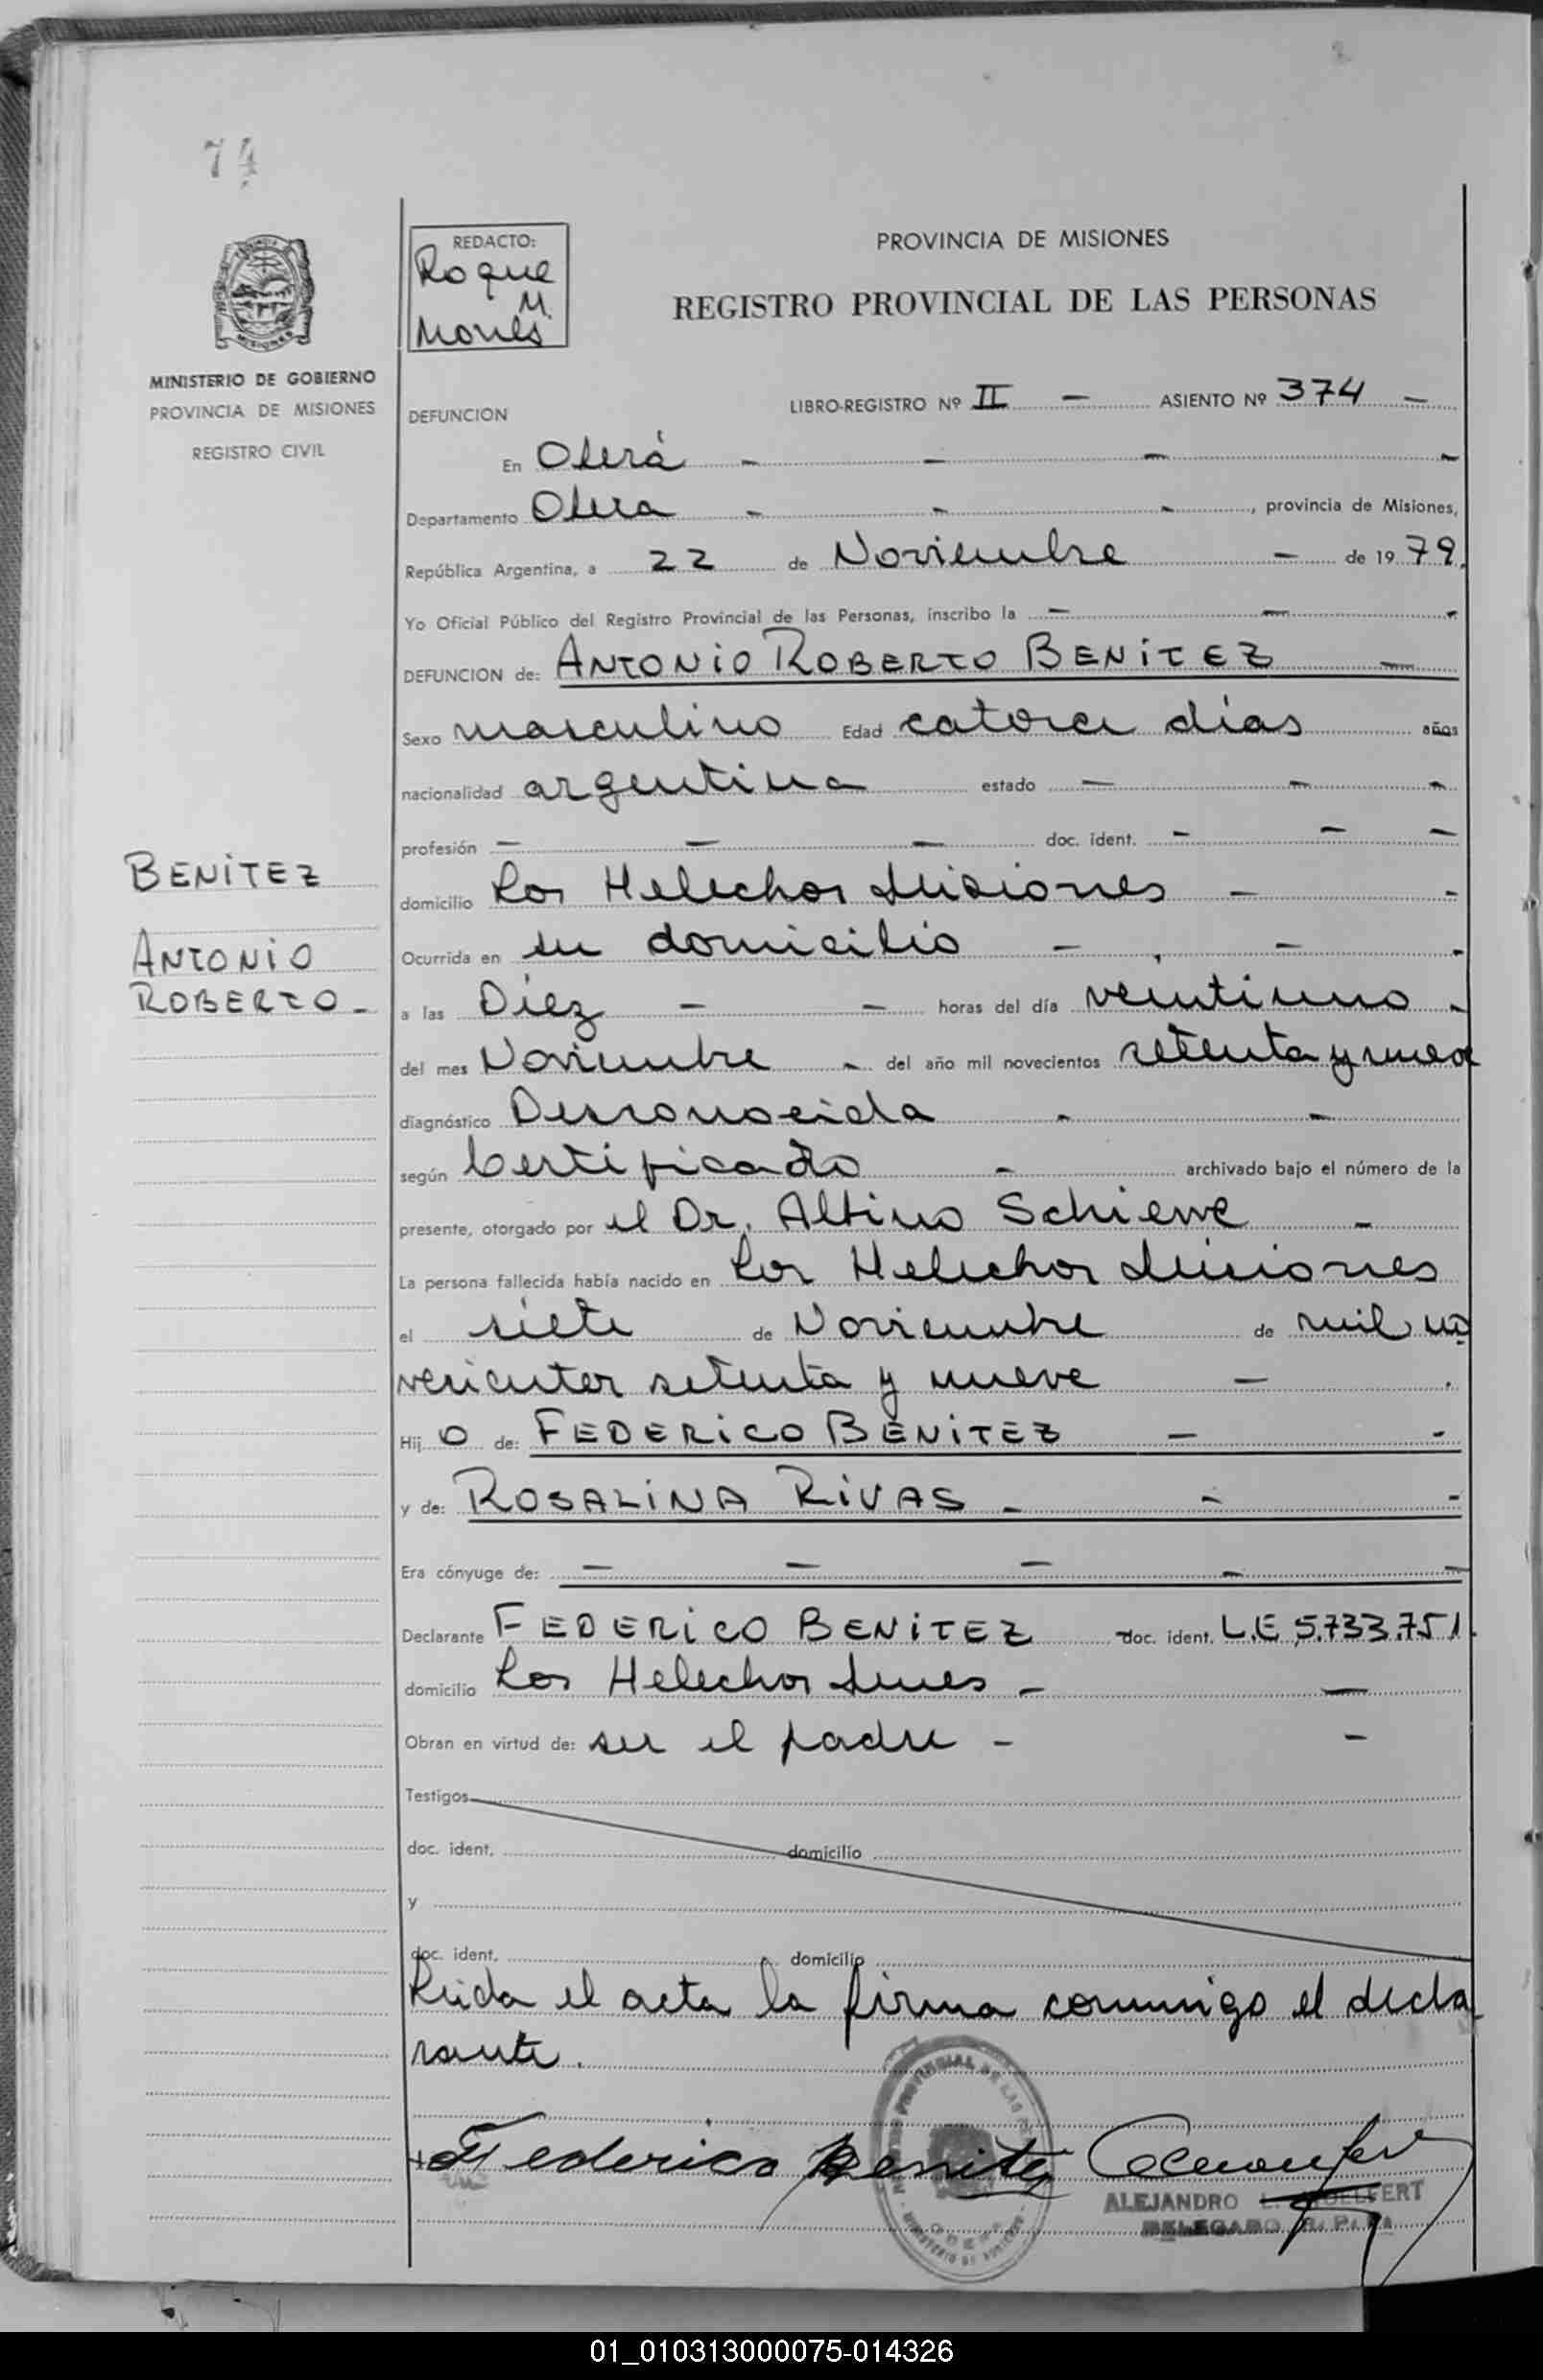 74
REDACTO:
Roque
M.
PROVINCIA DE MISIONES
REGISTRO PROVINCIAL DE LAS PERSONAS
MINISTERIO DE GOBIERNO
PROVINCIA DE MISIONES
REGISTRO CIVIL
DEFUNCION LIBRO-REGISTRO Nº II - ASIENTO Nº 374 -
En Oberá - - - -
Departamento Obera - - - , provincia de Misiones,
República Argentina, a 22 de Noviembre - de 1979.
Yo Oficial Público del Registro Provincial de las Personas, inscribo la - - -
DEFUNCION de: ANTONIO ROBERTO BENITEZ -
Sexo masculino Edad catorce días años
nacionalidad argentina estado - - -
profesión - - - doc. ident. - - -
BENITEZ
ANTONIO
ROBERTO -
domicilio Los Helechos Misiones - -
Ocurrida en su domicilio - - -
a las Diez - - horas del día veintiuno -
del mes Noviembre - del año mil novecientos setenta y nueve
diagnóstico Desconocida - -
según Certificado - archivado bajo el número de la
presente, otorgado por el Dr. Albino Schiewe -
La persona fallecida había nacido en Los Helechos Misiones
el siete de Noviembre de mil no
vecientos setenta y nueve -
Hij o de: FEDERICO BENITEZ - -
y de: ROSALINA RIVAS - - -
Era cónyuge de: - - - - -
Declarante FEDERICO BENITEZ doc. ident. L.E 5.733.751.
domicilio Los Helechos Mnes - -
Obran en virtud de: ser el padre - -
Testigos
doc. ident. domicilio
y
doc. ident. domicilio
Leida el acta la firma conmigo el decla
rante.
Federico Benitez
ALEJANDRO
DELEGADO R. P. P.
01_010313000075-014326